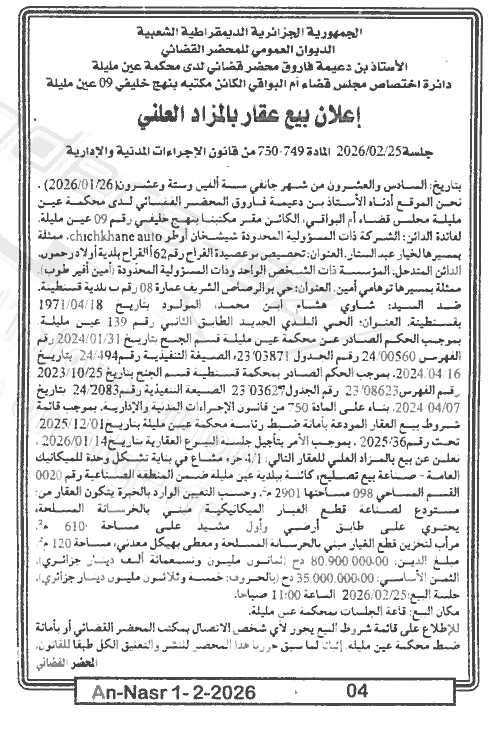 الجمهورية الجزائرية الديمقراطية الشعبية
الديوان العمومي للمحضر القضائي
الأستاذ بن دعيمة فاروق محضر قضائي لدى محكمة عين مليلة
دائرة اختصاص مجلس قضاء أم البواقي الكائن مكتبه بنهج خليفي 09 عين مليلة
إعلان بيع عقار بالمزاد العلني
جلسة 2026/02/25 المادة 749-750 من قانون الإجراءات المدنية والإدارية
بتاريخ: السادس والعشرون من شهر جانفي سنة ألفين وستة وعشرون (2026/01/26).
نحن الموقع أدناه الأستاذ بن دعيمة فاروق المحضر القضائي لدى محكمة عين
مليلة مجلس قضاء أم البواقي، الكائن مقر مكتبنا بنهج خليفي رقم 09 عين مليلة.
لفائدة الدائن: الشركة ذات المسؤولية المحدودة شيشخان أوطو chichkhane auto، ممثلة
بمسيرها لخيار عبد الستار. العنوان: تحصيص بوعصيدة القراح رقم 62 القراح بلدية أولاد رحمون.
الدائن المتدخل. المؤسسة ذات الشخص الواحد وذات المسؤولية المحدودة (أمين أفير طوب).
ممثلة بمسيرها توهامي أمين. العنوان: حي بوالرصاص الشريف عمارة 08 رقم ب بلدية قسنطينة.
ضد السيد: شاوي هشام ابن محمد، المولود بتاريخ 1971/04/18
بقسنطينة. العنوان: الحي البلدي الجديد الطابق الثاني رقم 139 عين مليلة
بموجب الحكم الصادر عن محكمة عين مليلة قسم الجنح بتاريخ 2024/01/31 رقم
الفهرس 24/00560 رقم الجدول 23/03871، الصيغة التنفيذية رقم 24/494 بتاريخ
2024/04/16. بموجب الحكم الصادر بمحكمة قسنطينة قسم الجنح بتاريخ 2023/10/25
رقم الفهرس 23/08623 رقم الجدول 23/03627 الصيغة التنفيذية رقم 24/2083 بتاريخ
2024/04/07. بناء على المادة 750 من قانون الإجراءات المدنية والإدارية. بموجب قائمة
شروط بيع العقار المودعة بأمانة ضبط رئاسة محكمة عين مليلة بتاريخ 2025/12/01
تحت رقم 2025/36. بموجب الأمر بتأجيل جلسة البيوع العقارية بتاريخ 2026/01/14.
نعلن عن بيع بالمزاد العلني للعقار التالي: 4/1 جزء مشاع في بناية تشكل وحدة للميكانيك
العامة - صناعة بيع تصليح، كائنة ببلدية عين مليلة ضمن المنطقة الصناعية رقم 0020
القسم المساحي 098 مساحتها 2901 م². وحسب التعيين الوارد بالخبرة يتكون العقار من:
مستودع لصناعة قطع الغيار الميكانيكية مبني بالخرسانة المسلحة،
يحتوي على طابق أرضي وأول مشيد على مساحة 610 م².
مرآب لتخزين قطع الغيار مبني بالخرسانة المسلحة ومغطى بهيكل معدني، مساحة 120 م².
مبلغ الدين: 80.900.000،00 دج (ثمانون مليون وتسعمائة ألف دينار جزائري).
الثمن الأساسي: 35.000.000،00 دج (بالحروف: خمسة وثلاثون مليون دينار جزائري).
جلسة البيع: 2026/02/25 الساعة 11:00 صباحا.
مكان البيع: قاعة الجلسات بمحكمة عين مليلة.
للإطلاع على قائمة شروط البيع يجوز لأي شخص الاتصال بمكتب المحضر القضائي أو بأمانة
ضبط محكمة عين مليلة. إثباتا لما سبق حررنا هذا المحضر للنشر والتعليق الكل طبقا للقانون.
المحضر القضائي
An-Nasr 1-2-2026 04